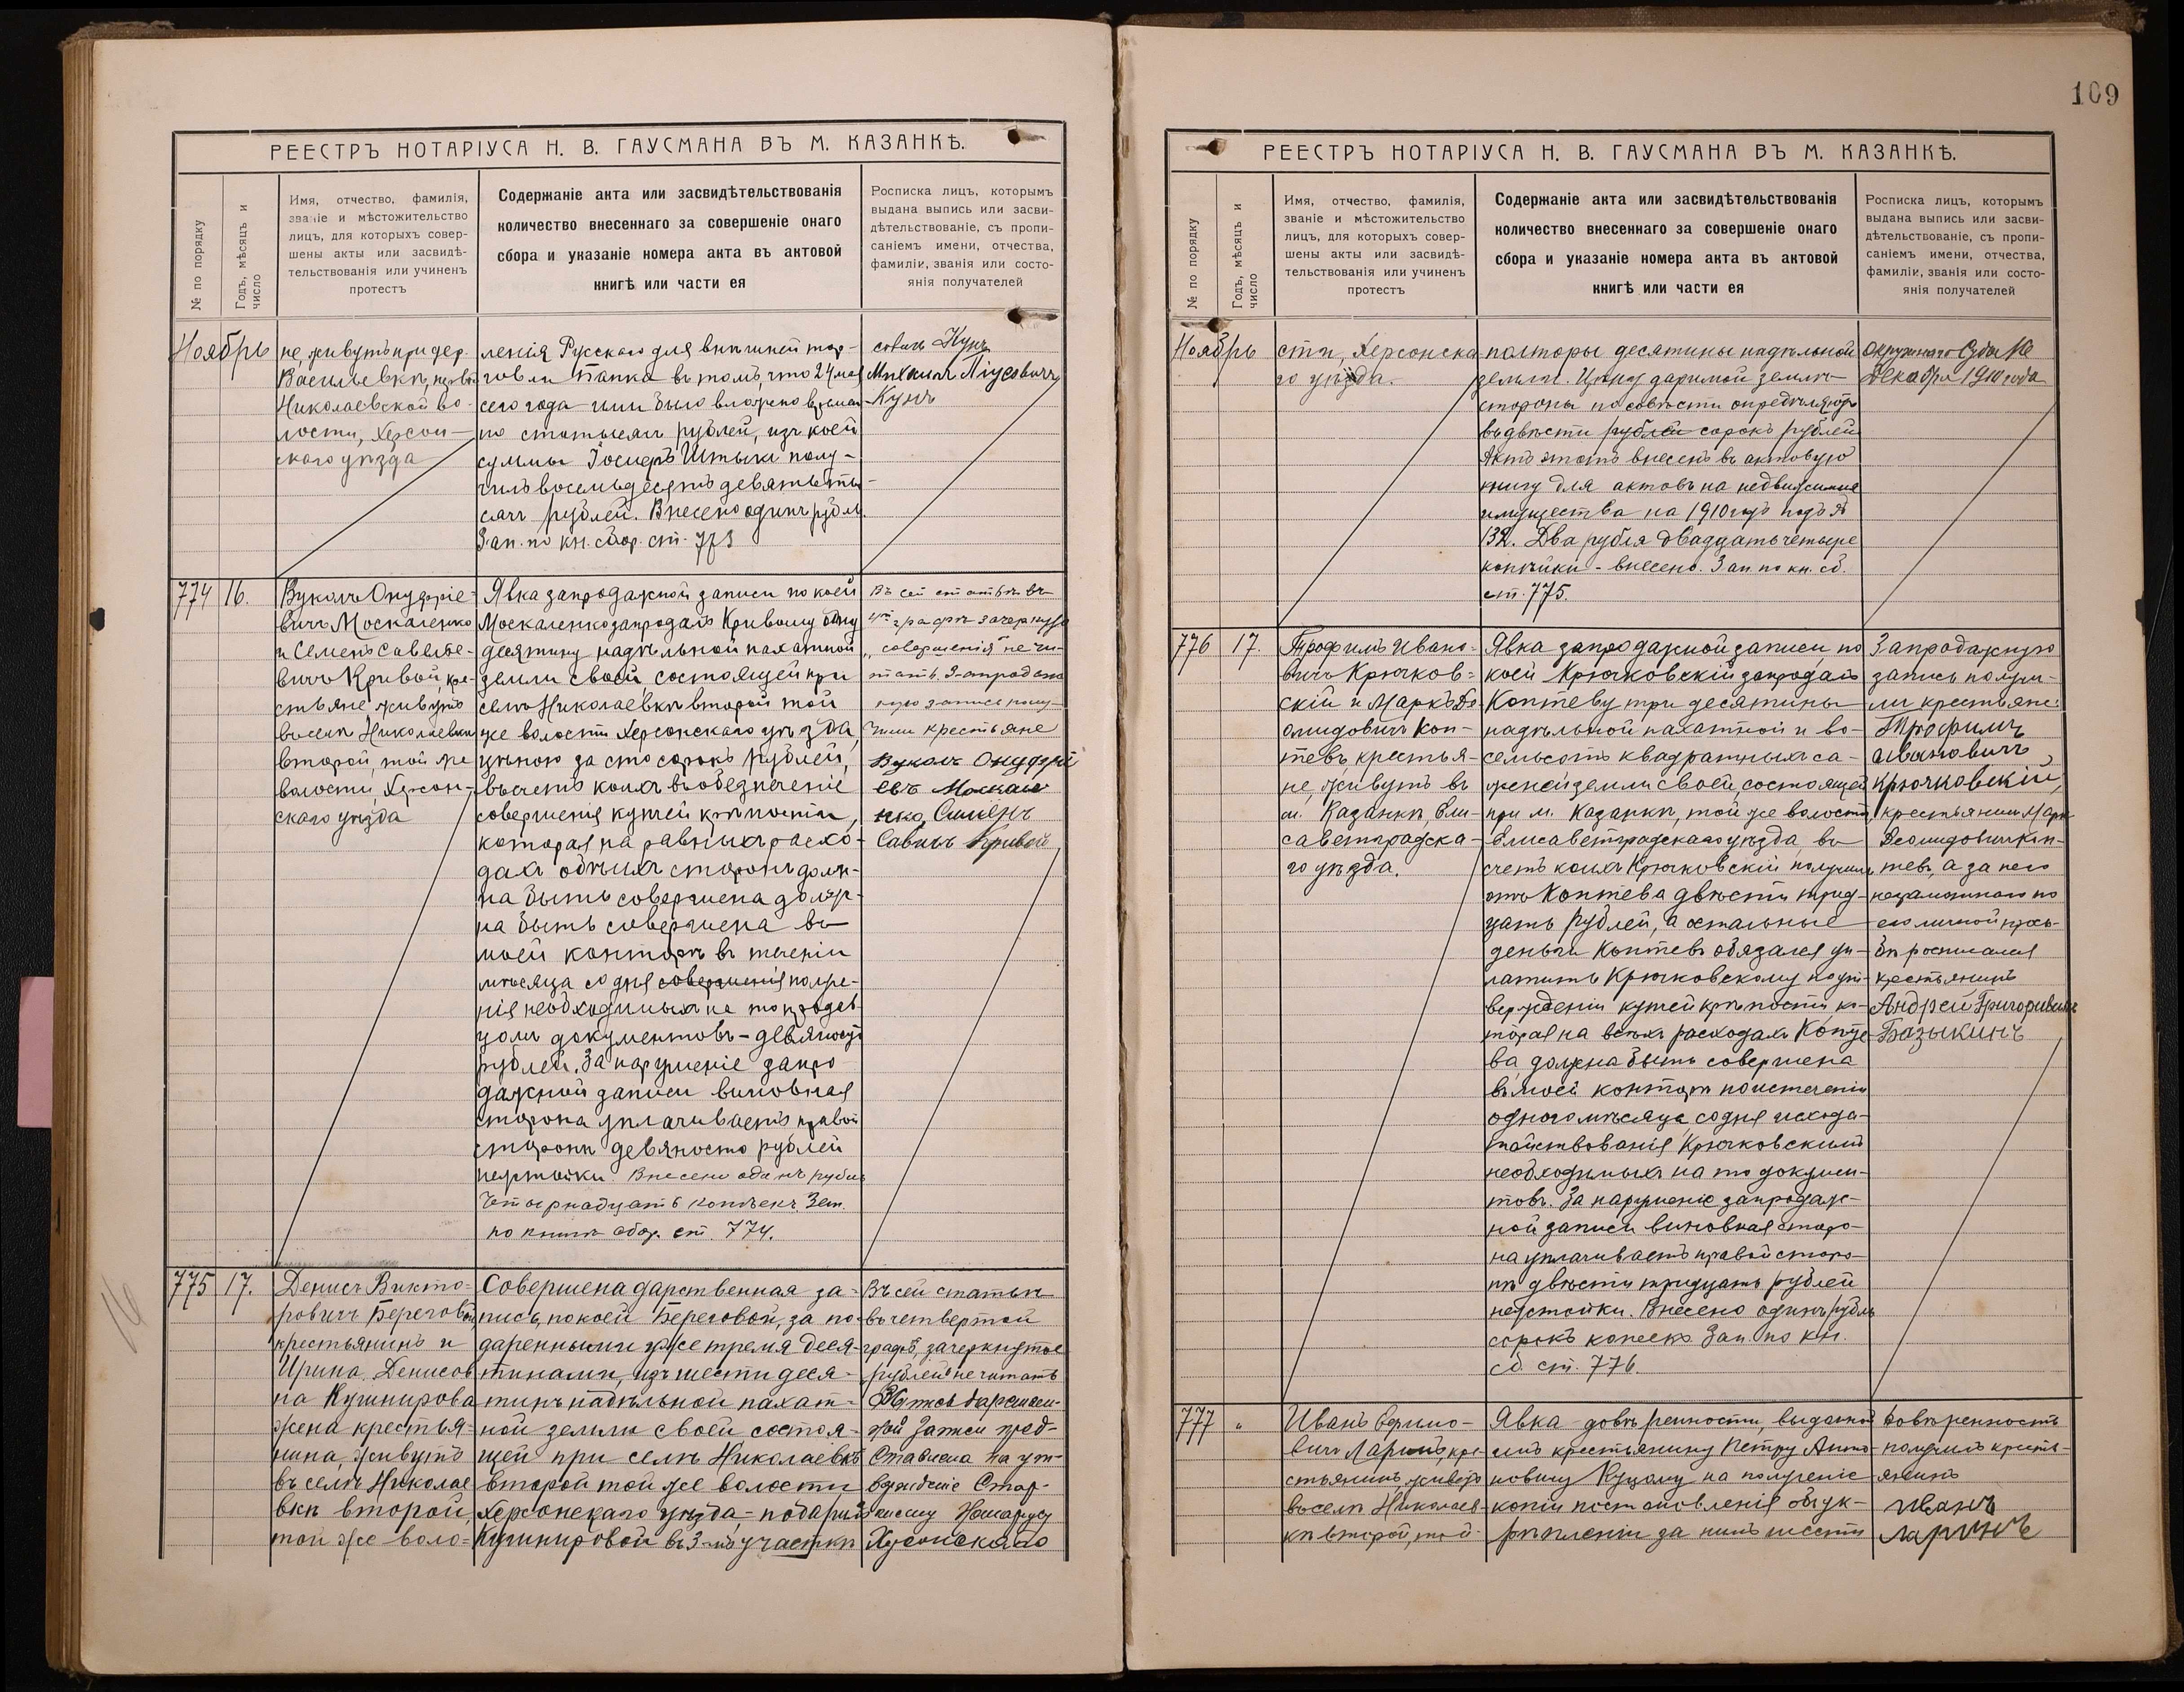 РЕЕСТРЪ НОТАРІУСА Н. В. ГАУСМАНА ВЪ М. КАЗАНКѢ.
№ по порядку
Годъ, мѣсяцъ и число
Имя, отчество, фамилія,
званіе и мѣстожительство
лицъ, для которыхъ совер-
шены акты или засвидѣ-
тельствованія или учиненъ
протестъ
Содержаніе акта или засвидѣтельствованія
количество внесеннаго за совершеніе онаго
сбора и указаніе номера акта въ актовой
книгѣ или части ея
Росписка лицъ, которымъ
выдана выпись или засви-
дѣтельствованіе, съ пропи-
саніемъ имени, отчества,
фамиліи, званія или состо-
янія получателей
Ноябрь
не, живутъ при дер.
Васильевкѣ,
Николаевской во-
лости, Херсон-
скаго уѣзда
ленія Русскаго для внѣшней тор-
говли Банка въ томъ, что 24 мая
сего года ими было вложено
по сто тысячъ рублей, изъ коей
суммы Іосифъ Штыки полу-
чилъ восемьдесятъ девять ты-
сячъ рублей. Внесено одинъ рубль.
Зап. по кн. сбор. ст. 773
совичъ Кунъ
Михаилъ
Кунъ
774
16.
Вуколъ Онуфріе-
вичъ Москаленко
и Семенъ Савелье-
вичъ Кривой, кре-
стьяне живутъ
въ селѣ Николаевкѣ
второй, той же
волости, Херсон-
скаго уѣзда
Явка запродажной записи по коей
Москаленко запродалъ Кривому одну
десятину надѣльной пахатной
земли своей состоящей при
селѣ Николаевкѣ второй той
же волости Херсонскаго уѣзда,
цѣною за сто сорокъ рублей,
въ счетъ коихъ въ обезпеченіе
совершенія купчей крѣпости,
которая на равныхъ расхо-
дахъ обѣихъ сторонъ долж-
на быть совершена долж-
на быть совершена въ
моей конторѣ въ теченіи
мѣсяца со дня совершенія получе-
нія необходимыхъ на то продав-
цомъ документовъ – девяносто
рублей. За нарушеніе запро
дажной записи виновная
сторона уплачиваетъ правой
сторонѣ девяносто рублей
неустойки. Внесено одинъ рубль
четырнадцать копѣекъ. Зап.
по книгѣ сбор. ст. 774.
Въ сей статьѣ въ
4й графѣ зачеркнуто
„совершенія“ не чи-
тать. Запродаж
ную запись полу-
чили крестьяне
Вуколъ Онуфрі
евъ Москале
нко, Симёнъ
Савичъ Кривой
775
17.
Денисъ Викто-
ровичъ Береговой
крестьянинъ и
Ирина Денисов
на Кушнирова
жена крестья-
нина, живутъ
въ селѣ Николае
вкѣ второй,
той же воло-
Совершена дарственная за-
пись, по коей Береговой, за по-
даренными уже тремя деся-
тинами, изъ шести деся-
тинъ надѣльной пахат-
ной земли своей состоя-
щей при селѣ Николаевкѣ
второй той же волости
Херсонскаго уѣзда – подарилъ
Кушнировой въ 3-мъ участкѣ
Въ сей статьѣ
въ четвертой
графѣ, зачеркнутое
„рублей“ не читать
записи пред-
ставлена на ут-
вержденіе Стар-
шему Нотаріусу
Херсонскаго
16
109
РЕЕСТРЪ НОТАРІУСА Н. В. ГАУСМАНА ВЪ М. КАЗАНКѢ.
№ по порядку
Годъ, мѣсяцъ и число
Имя, отчество, фамилія,
званіе и мѣстожительство
лицъ, для которыхъ совер-
шены акты или засвидѣ-
тельствованія или учиненъ
протестъ
Содержаніе акта или засвидѣтельствованія
количество внесеннаго за совершеніе онаго
сбора и указаніе номера акта въ актовой
книгѣ или части ея
Росписка лицъ, которымъ
выдана выпись или засви-
дѣтельствованіе, съ пропи-
саніемъ имени, отчества,
фамиліи, званія или состо-
янія получателей
Ноябрь
сти, Херсонска
го уѣзда.
полторы десятины надѣльной
земли. Цѣну даримой земли
стороны по совѣсти опредѣляютъ
въ двѣсти рублей сорокъ рублей
Актъ этотъ внесенъ въ актовую
книгу для актовъ на недвижимыя
имущества на 1910 годъ подъ №
132. Два рубля двадцать четыре
копѣйки – внесено. Зап. по кн. сб.
ст. 775.
Окружнаго Суда
Декабря 1910 года
776
17.
Трофимъ Ивано-
вичъ Крючков-
скій и Маркъ Дi
омидовичъ Коп-
тевъ крестья-
не, живутъ въ
м. Казанкѣ, Ели-
саветградска-
го уѣзда.
Явка запродажной записи, по
коей Крючковскій запродалъ
Коптеву три десятины
надѣльной пахатной и во-
семьсотъ квадратныхъ са-
женей земли своей, состоящей
при м. Казанкѣ, той же волости
Елисаветградскаго уѣзда, въ
счетъ коихъ Крючковскій получилъ
отъ Коптева двѣсти трид-
цать рублей, а остальные
деньги Коптевъ обязался уп-
латить Крючковскому по ут-
вержденіи купчей крѣпости ко-
торая на всѣхъ расходахъ Копте
ва, должна быть совершена
въ моей конторѣ по истеченіи
одного мѣсяца, со дня исхода-
тайствованія Крючковскимъ
необходимыхъ на то докумен-
товъ. За нарушеніе запродаж-
ной записи виновная сторо-
на уплачиваетъ правой сторо-
нѣ двѣсти тридцать рублей
неустойки. Внесено одинъ рубль
сорокъ копеекъ. Зап. по кн.
сб. ст. 776.
Запродажную
запись получи-
ли крестьяне:
Трофимъ
Ивановичъ
Крючковскій,
крестьянинъ Маркъ
Деомидовичъ Коп-
тевъ, а за него
неграмотнаго по
его личной прось-
бѣ росписался
крестьянинъ
Андрей Григорьевичъ
Базыкинъ
777
„
Иванъ
вичъ Ларинъ, кре-
стьянинъ, живетъ
въ селѣ Николаев-
кѣ второй, той
Явка довѣренности, выданной
имъ крестьянину Петру Анто-
новичу Куцому на полученіе
копіи постановленія объ ук-
рѣпленіи за нимъ шести
Довѣренность
получилъ кресть-
янинъ
Иванъ
Ларинъ